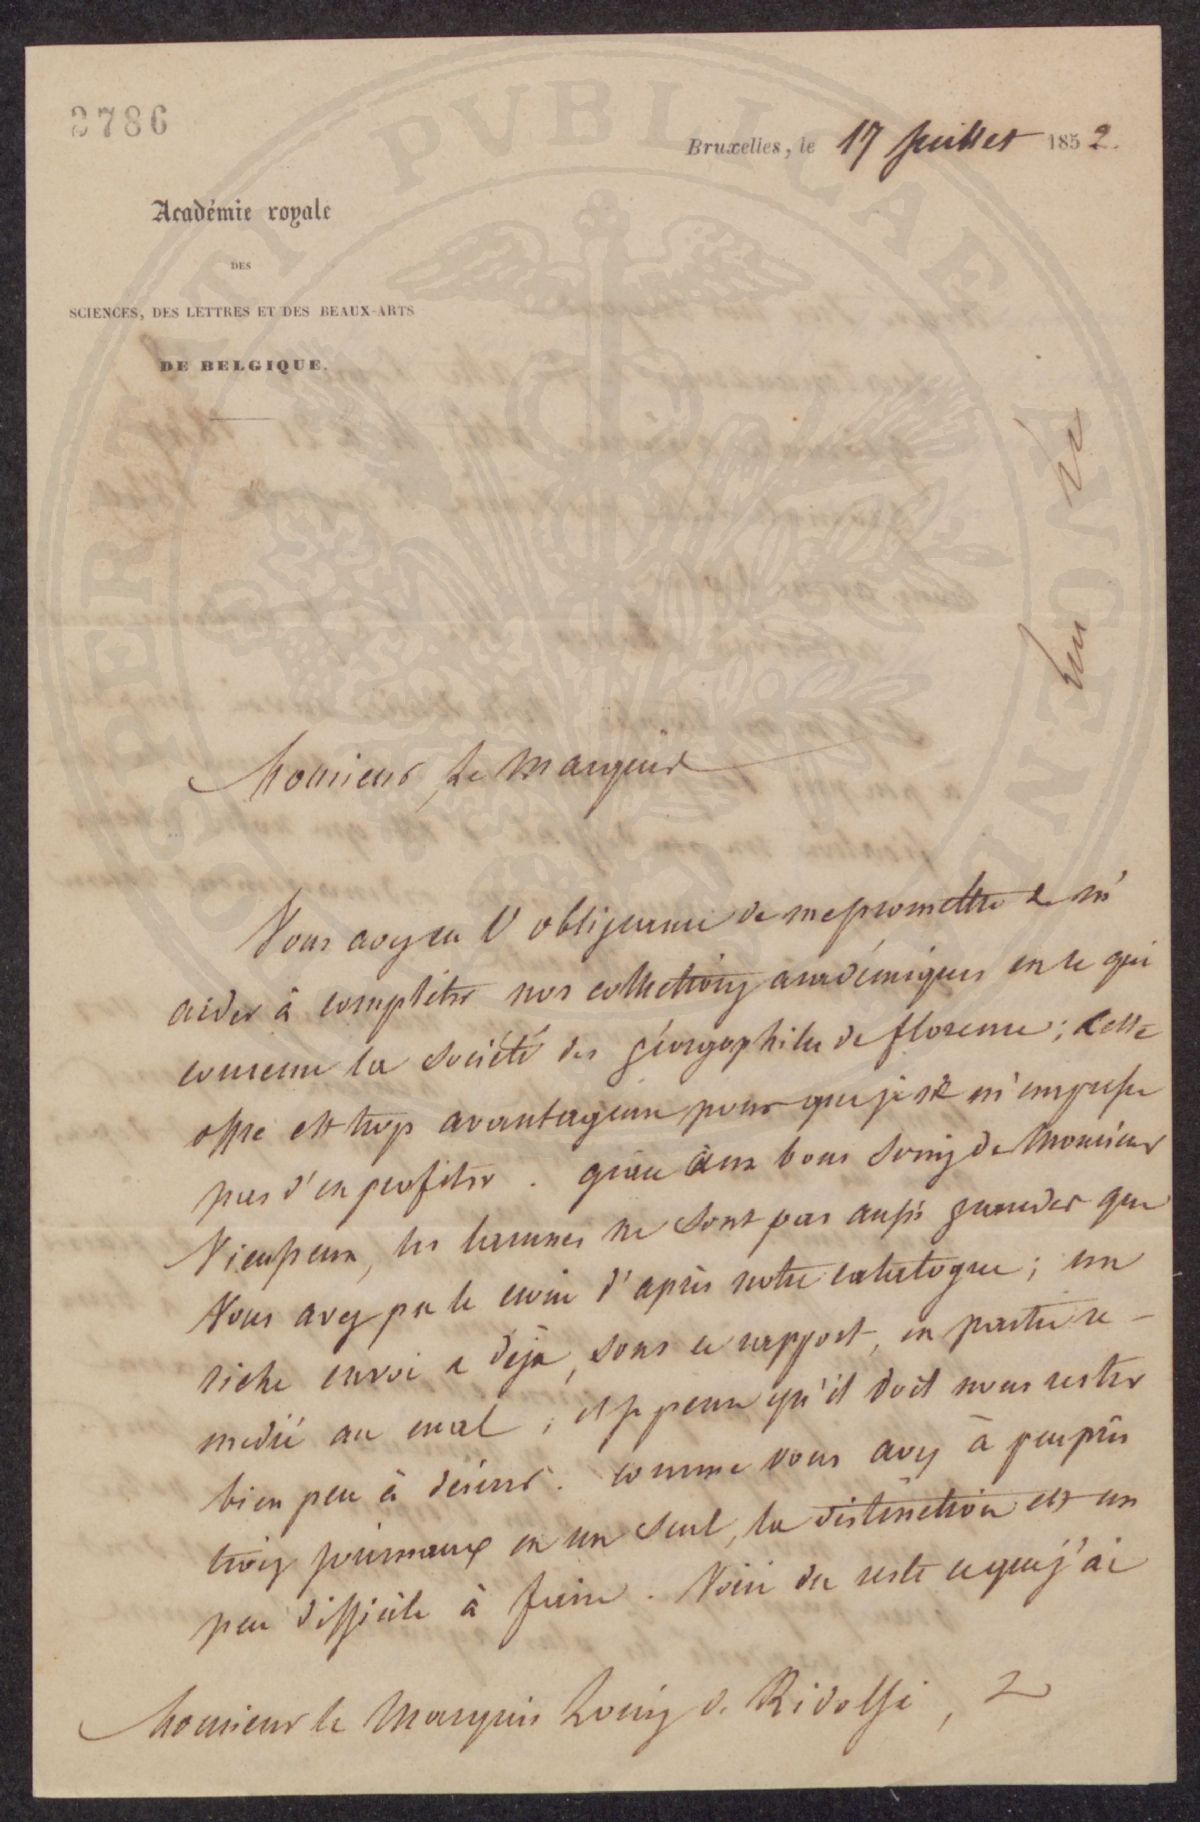 3786
Bruxelles, le 17 Juillet 1852.
Académie royale
DES
SCIENCES, DES LETTRES ET DES BEAUX-ARTS
DE BELGIQUE.
Monsieur, Le Marquis
Vous avez eu l'obligeance de me promettre de m'
aider à compléter nos collections académiques en ce qui
concerne la Société des géorgophiles de florence; cette
offre est trop avantageuse pour que je ne m'empresse
pas d'en profiter. grâce aux bons soins de Monsieur
Vieusseux, les lacunes ne sont pas aussi grandes que
Vous avez pu le croire d'après notre catalogue; un
riche envoi a déjà, sous ce rapport, en partie re-
medié au mal; et je pense qu'il doit nous rester
bien peu à désirer. comme vous avez à peu près
trois journaux en un seul, la distinction est un
peu difficile à faire. Voici du reste ce que j'ai
Monsieur le Marquis Louis de Ridolfi,